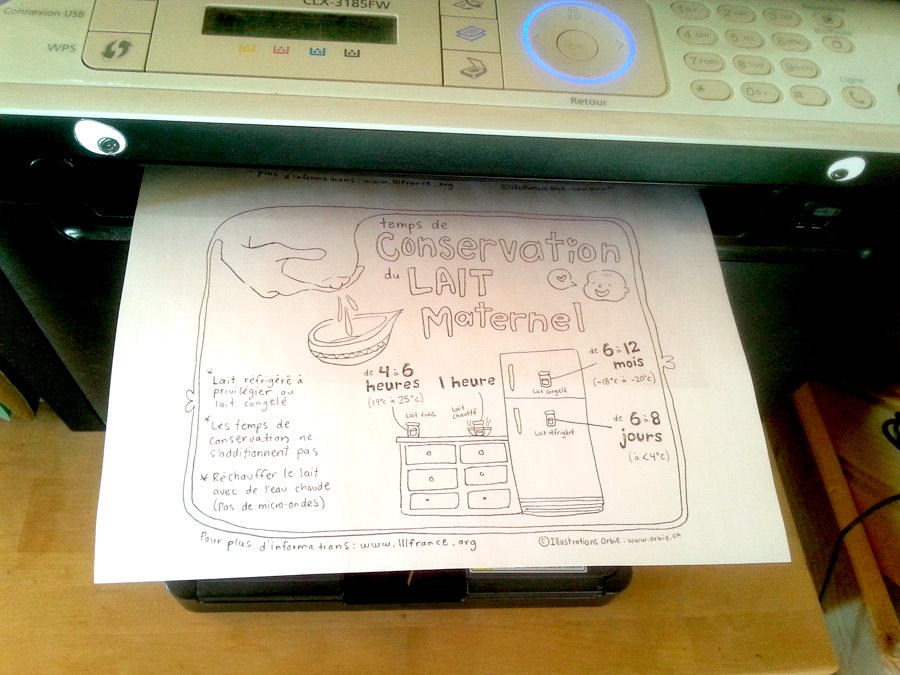 Connexion USB
CLX-3185FW
WPS
OK
Retour
1
2
3
4
5
6
7
8
9
*
0
#
Ligne
plus d'informations : www.lllfrance.org
temps de
Conservation
du LAIT
Maternel
* Lait réfrigéré à
privilégier au
lait congelé
* Les temps de
conservation ne
s'additionnent pas
* Réchauffer le lait
avec de l'eau chaude
(Pas de micro-ondes)
de 4 à 6
heures
(19°c à 25°c)
Lait frais
1 heure
Lait
chauffé
de 6 à 12
mois
(-18°c à -20°c)
Lait congelé
de 6 à 8
jours
(à <4°c)
Lait réfrigéré
Pour plus d'informations : www.lllfrance.org
©Illustrations Orbie : www.orbie.ca